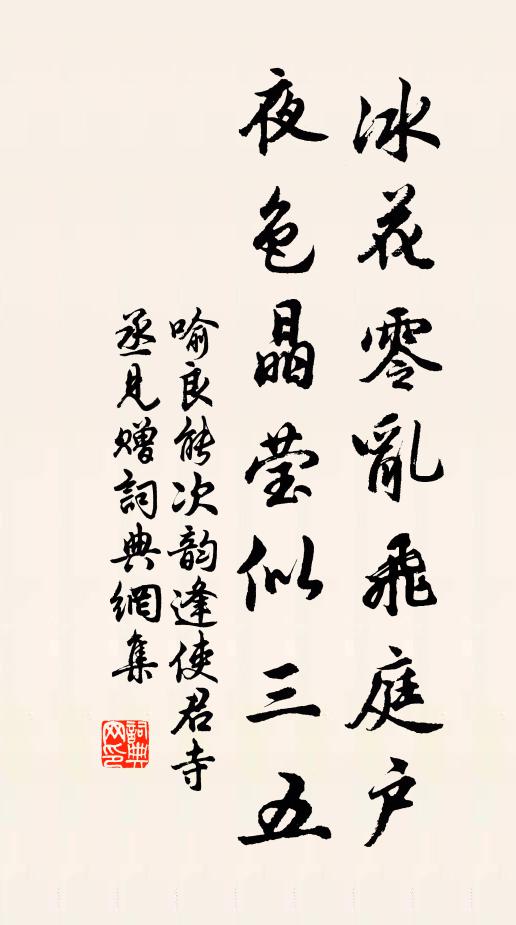 冰花零亂飛庭户
夜色晶莹似三五
喻良能次韵逢使君寺
丞見贈詞典網集
詞典
网印